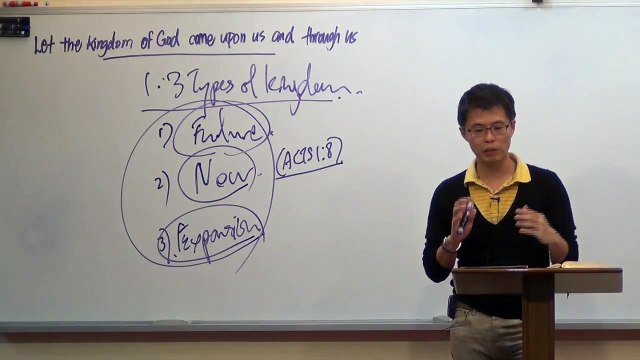 Let the kingdom of God come upon us and through us
1. 3 Types of kingdom.
1) Future.
2) Now.
(ACTS 1:8)
3) Expansion